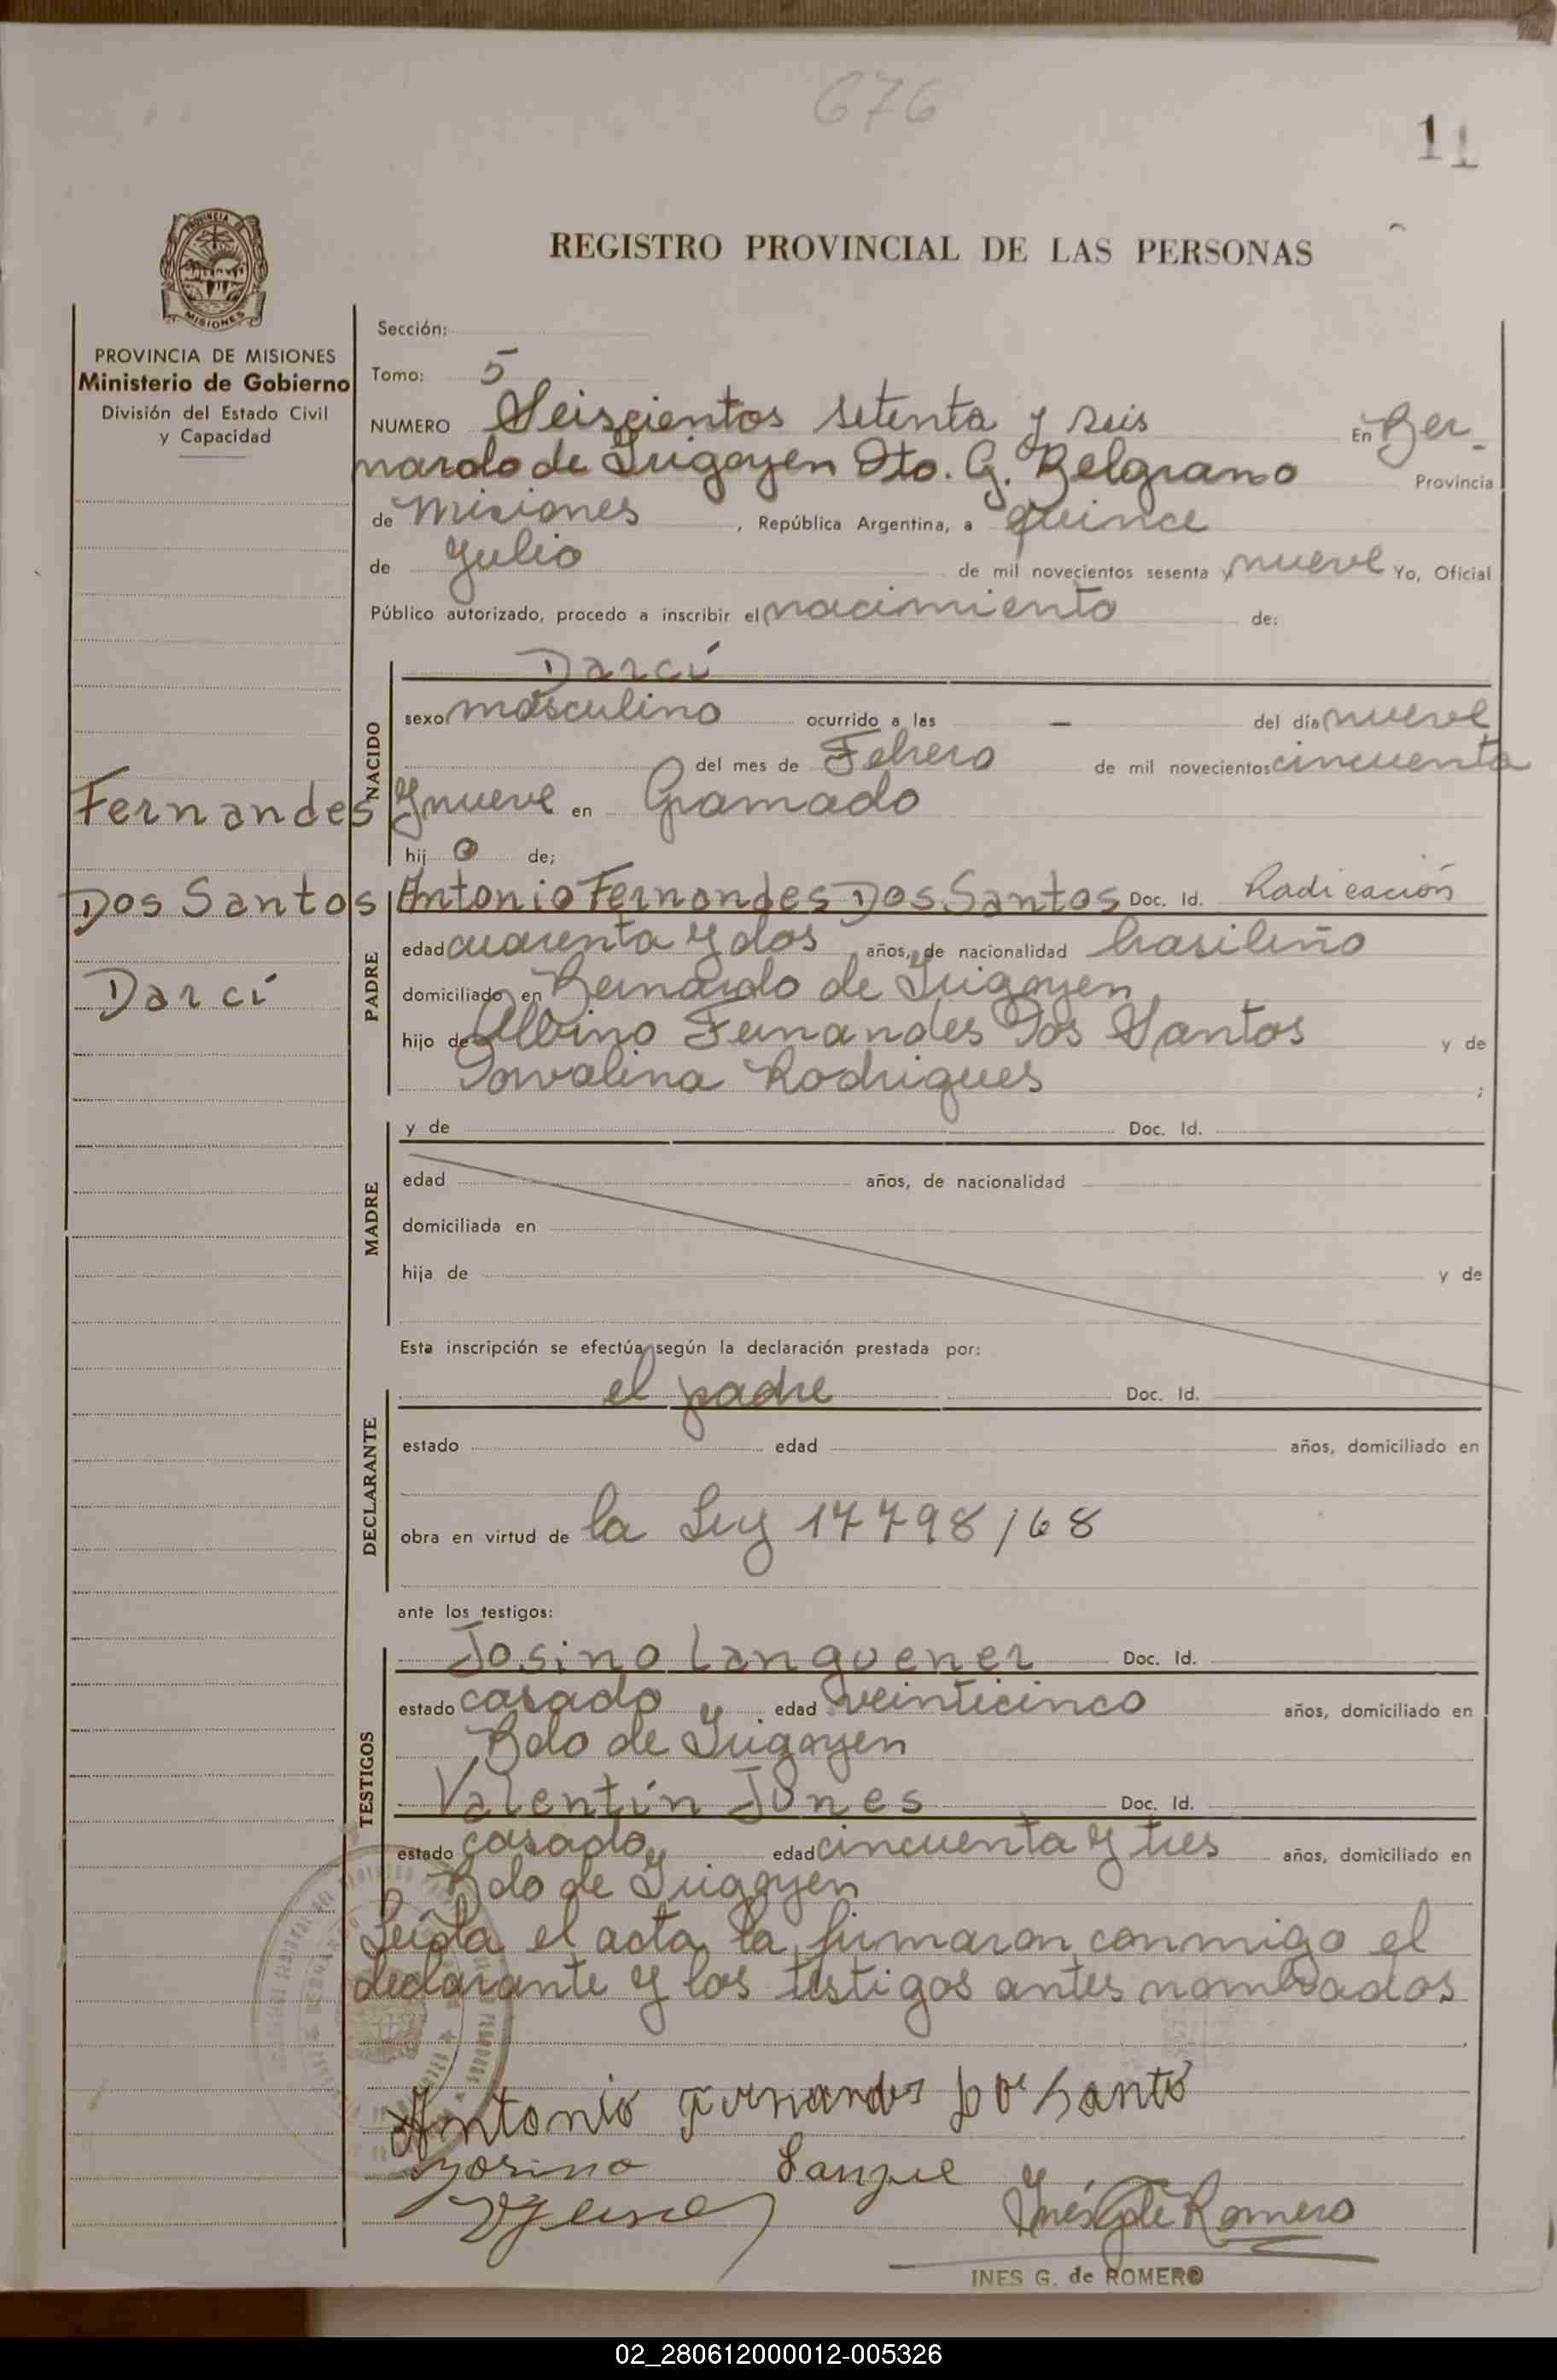 676
11
REGISTRO PROVINCIAL DE LAS PERSONAS
PROVINCIA
MISIONES
PROVINCIA DE MISIONES
Ministerio de Gobierno
División del Estado Civil
y Capacidad
Sección:
Tomo: 5
NUMERO Seiscientos setenta y seis En Ber-
nardo de Irigoyen Dto. G. Belgrano Provincia
de Misiones, República Argentina, a quince
de Julio de mil novecientos sesenta y nueve Yo, Oficial
Público autorizado, procedo a inscribir el nacimiento de:
Darcí
NACIDO
sexo masculino ocurrido a las — del día nueve
del mes de Febrero de mil novecientos cincuenta
y nueve en Gramado
hijo de;
Fernandes
Dos Santos
Darcí
PADRE
Antonio Fernandes Dos Santos Doc. Id. Radicación
edad cuarenta y dos años, de nacionalidad brasileño
domiciliado en Bernardo de Irigoyen
hijo de Albino Fernandes Dos Santos y de
Dorvalina Rodrigues ;
MADRE
y de Doc. Id.
edad años, de nacionalidad
domiciliada en
hija de y de
Esta inscripción se efectúa según la declaración prestada por:
DECLARANTE
el padre Doc. Id.
estado edad años, domiciliado en
obra en virtud de la Ley 17798/68
ante los testigos:
TESTIGOS
Josino Languener Doc. Id.
estado casado edad veinticinco años, domiciliado en
Bdo de Irigoyen
Valentín Junes Doc. Id.
estado casado edad cincuenta y tres años, domiciliado en
Bdo de Irigoyen
Leída el acta la firmaron conmigo el
declarante y los testigos antes nombrados
Antonio Fernandes Do Santo
Josino Langue
Inés G de Romero
INES G. de ROMERO
02_280612000012-005326